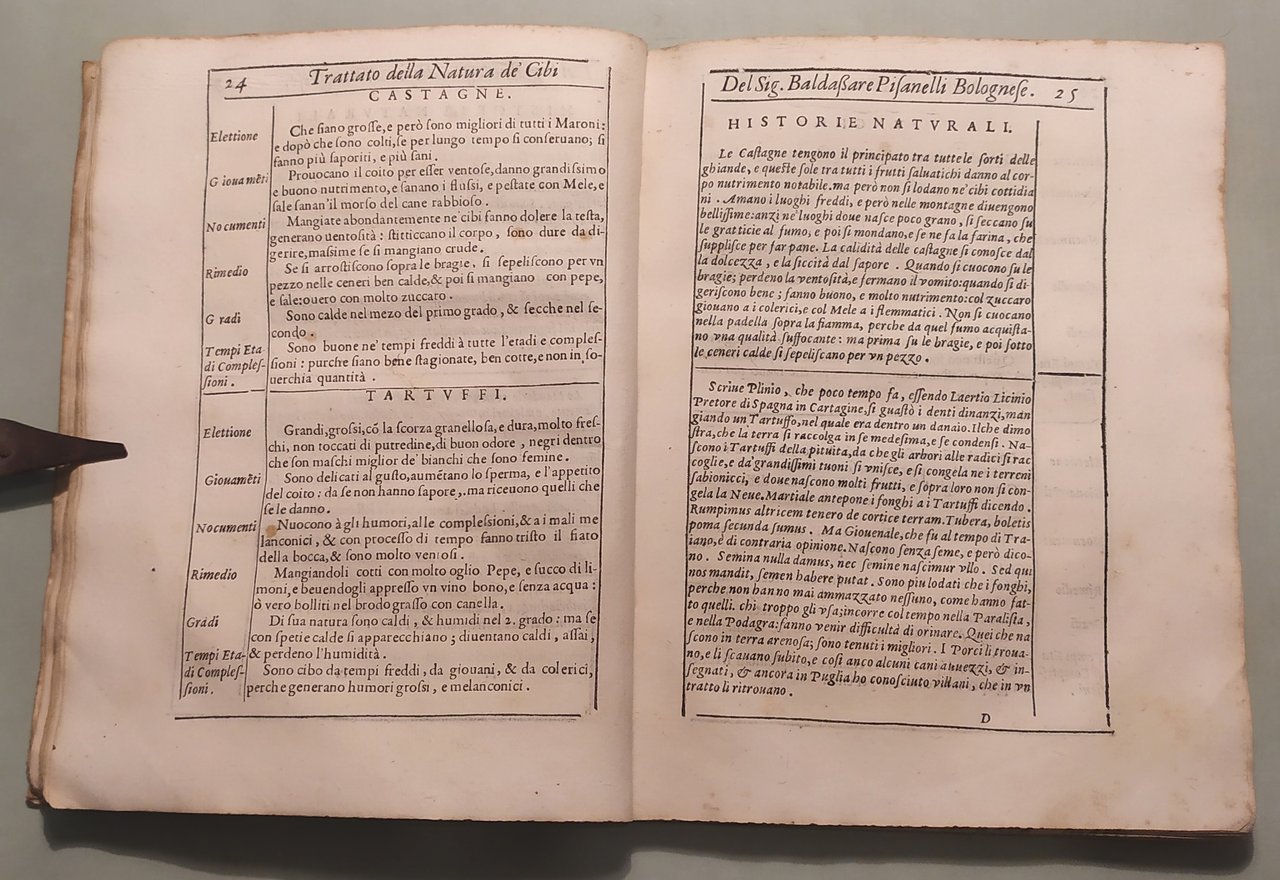 24 Trattato della Natura de' Cibi
CASTAGNE.
Elettione
Che siano grosse, e però sono migliori di tutti i Maroni:
e dopò che sono colti, se per lungo tempo si conseruano; si
fanno più saporiti, e più sani.
Giouamẽti
Prouocano il coito per esser ventose, danno grandissimo
e buono nutrimento, e sanano i flussi, e pestate con Mele, e
sale sanan'il morso del cane rabbioso.
Nocumenti
Mangiate abondantemente ne' cibi fanno dolere la testa,
generano uentosità: stitticcano il corpo, sono dure da di-
gerire, masime se si mangiano crude.
Rimedio
Se si arrostiscono sopra le bragie, si sepeliscono per vn
pezzo nelle ceneri ben calde, & poi si mangiano con pepe,
e sale: ouero con molto zuccaro.
Gradi
Sono calde nel mezo del primo grado, & secche nel se-
condo.
Tempi Eta
di Comples-
sioni.
Sono buone ne' tempi freddi à tutte l'etadi e comples-
sioni: purche siano bene stagionate, ben cotte, e non in so-
uerchia quantità.
TARTVFFI.
Elettione
Grandi, grossi, cõ la scorza granellosa, e dura, molto fres-
chi, non toccati di putredine, di buon odore, negri dentro
che son maschi miglior de' bianchi che sono femine.
Giouamẽti
Sono delicati al gusto, aumẽtano lo sperma, e l'appetito
del coito: da se non hanno sapore, ma riceuono quelli che
se le danno.
Nocumenti
Nuocono à gli humori, alle complessioni, & a i mali me
lanconici, & con processo di tempo fanno tristo il fiato
della bocca, & sono molto ventosi.
Rimedio
Mangiandoli cotti con molto oglio Pepe, e succo di li-
moni, e beuendogli appresso vn vino bono, e senza acqua:
ò vero bolliti nel brodo grasso con canella.
Gradi
Di sua natura sono caldi, & humidi nel 2. grado: ma se
con spetie calde si apparecchiano; diuentano caldi, assai,
& perdeno l'humidità.
Tempi Eta-
di Comples-
sioni.
Sono cibo da tempi freddi, da giouani, & da colerici,
perche generano humori grossi, e melanconici.
Del Sig. Baldassare Pisanelli Bolognese. 25
HISTORIE NATVRALI.
Le Castagne tengono il principato tra tutte le sorti delle
ghiande, e queste sole tra tutti i frutti saluatichi danno al cor-
po nutrimento notabile. ma però non si lodano ne' cibi cottidia
ni. Amano i luoghi freddi, e però nelle montagne diuengono
bellissime: anzi ne' luoghi doue nasce poco grano, si seccano su
le gratticie al fumo, e poi si mondano, e se ne fa la farina, che
supplisce per far pane. La calidità delle castagne si conosce dal
la dolcezza, e la siccità dal sapore. Quando si cuocono su le
bragie; perdeno la ventosità, e fermano il vomito: quando si di
geriscono bene; fanno buono, e molto nutrimento: col zuccaro
giouano a i colerici, e col Mele a i flemmatici. Non si cuocano
nella padella sopra la fiamma, perche da quel fumo acquista-
no vna qualità suffocante: ma prima su le bragie, e poi sotto
le ceneri calde si sepeliscano per vn pezzo.
Scriue Plinio, che poco tempo fa, essendo Laertio Licinio
Pretore di Spagna in Cartagine, si guastò i denti dinanzi, man
giando un Tartuffo, nel quale era dentro un danaio. Ilche dimo
stra, che la terra si raccolga in se medesima, e se condensi. Na-
scono i Tartuffi della pituita, da che gli arbori alle radici si rac
coglie, e da' grandissimi tuoni si vnisce, e si congela ne i terreni
sabionicci, e doue nascono molti frutti, e sopra loro non si con-
gela la Neue. Martiale antepone i fonghi a i Tartuffi dicendo.
Rumpimus altricem tenero de cortice terram. Tubera, boletis
poma secunda sumus. Ma Giouenale, che fu al tempo di Tra-
iano, è di contraria opinione. Nascono senza seme, e però dico-
no. Semina nulla damus, nec semine nascimur vllo. Sed qui
nos mandit, semen habere putat. Sono piu lodati che i fonghi,
perche non hanno mai ammazzato nessuno, come hanno fat-
to quelli. chi troppo gli vsa; incorre col tempo nella Paralisia,
e nella Podagra: fanno venir difficultà di orinare. Quei che na
scono in terra arenosa; sono tenuti i migliori. I Porci li troua-
no, e li scauano subito, e così anco alcuni cani auuezzi, & in-
segnati, & ancora in Puglia ho conosciuto villani, che in vn
tratto li ritrouano.
D